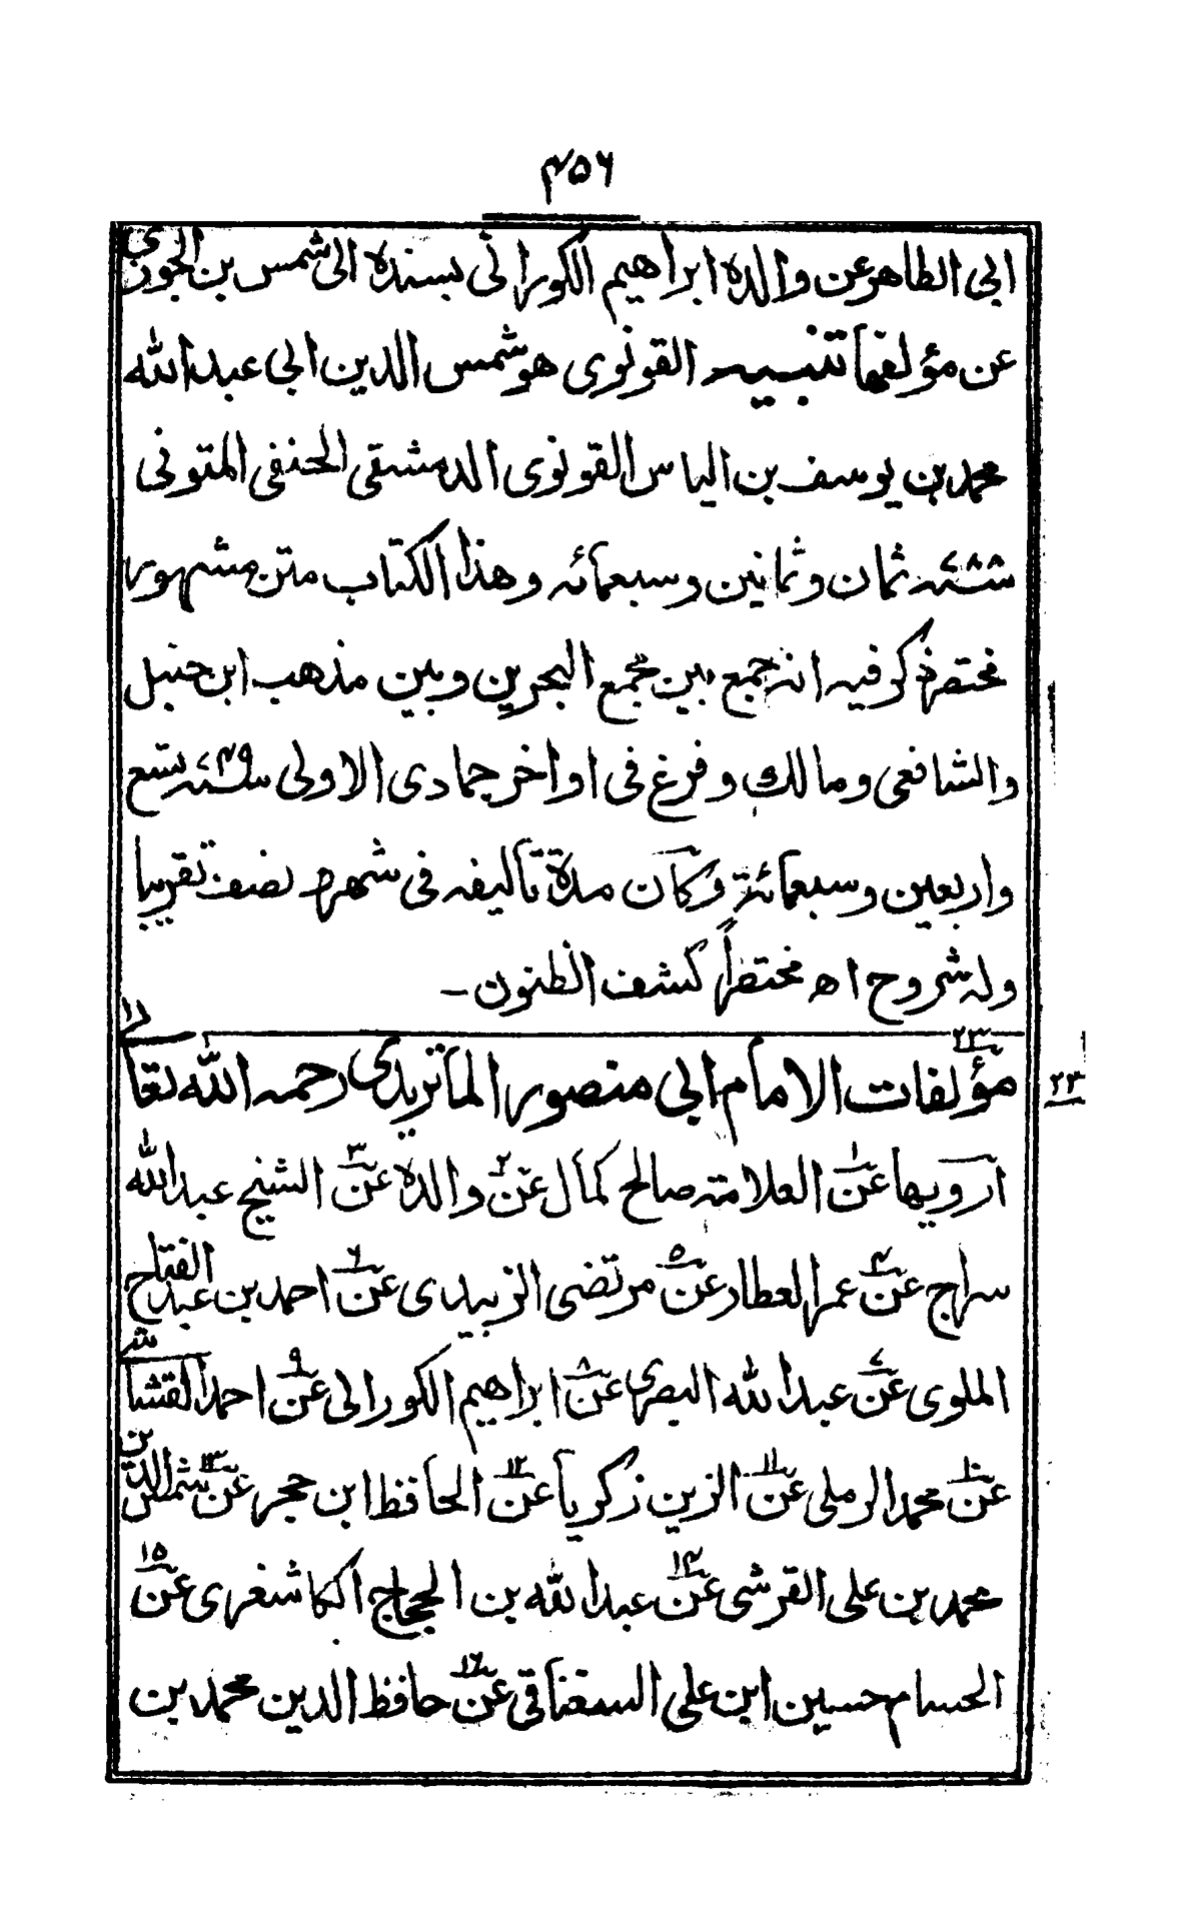 ۴۵۶
ابی الطاهر عن والده ابراهیم الکورانی بسنده الی شمس بن الجوزی
عن مؤلفها تنبیہ القونوی هو شمس الدین ابی عبد الله
محمد بن یوسف بن الیاس القونوی الدمشقی الحنفی المتوفی
ثمان وثمانین وسبعمائه وهذا الکتاب متن مشهور
مختصر ذکر فیه انه جمع بین مجمع البحرین وبین مذهب ابن حنبل
والشافعی ومالک وفرغ فی اواخر جمادی الاولی سنه ۷۴۹ تسع
واربعین وسبعمائة وکان مدة تألیفه فی شهر ونصف تقریبا
وله شروح اه مختصراً کشف الظنون -
۲۳ مؤلفات الامام ابی منصور الماتریدی رحمه الله تعالی ۲۳
ارویها عن۱ العلامة صالح کمال عن۲ والده عن۳ الشیخ عبد الله
سراج عن۴ عمر العطار عن۵ مرتضی الزبیدی عن۶ احمد بن عبد الفتاح
الملوی عن۷ عبد الله البصری عن۸ ابراهیم الکورانی عن۹ احمد القشاشی
عن۱۰ محمد الرملی عن۱۱ الزین زکریا عن۱۲ الحافظ ابن حجر عن۱۳ شمس الدین
محمد بن علی القرشی عن۱۴ عبد الله بن الحجاج الکاشغری عن۱۵
الحسام حسین ابن علی السغناقی عن۱۶ حافظ الدین محمد بن